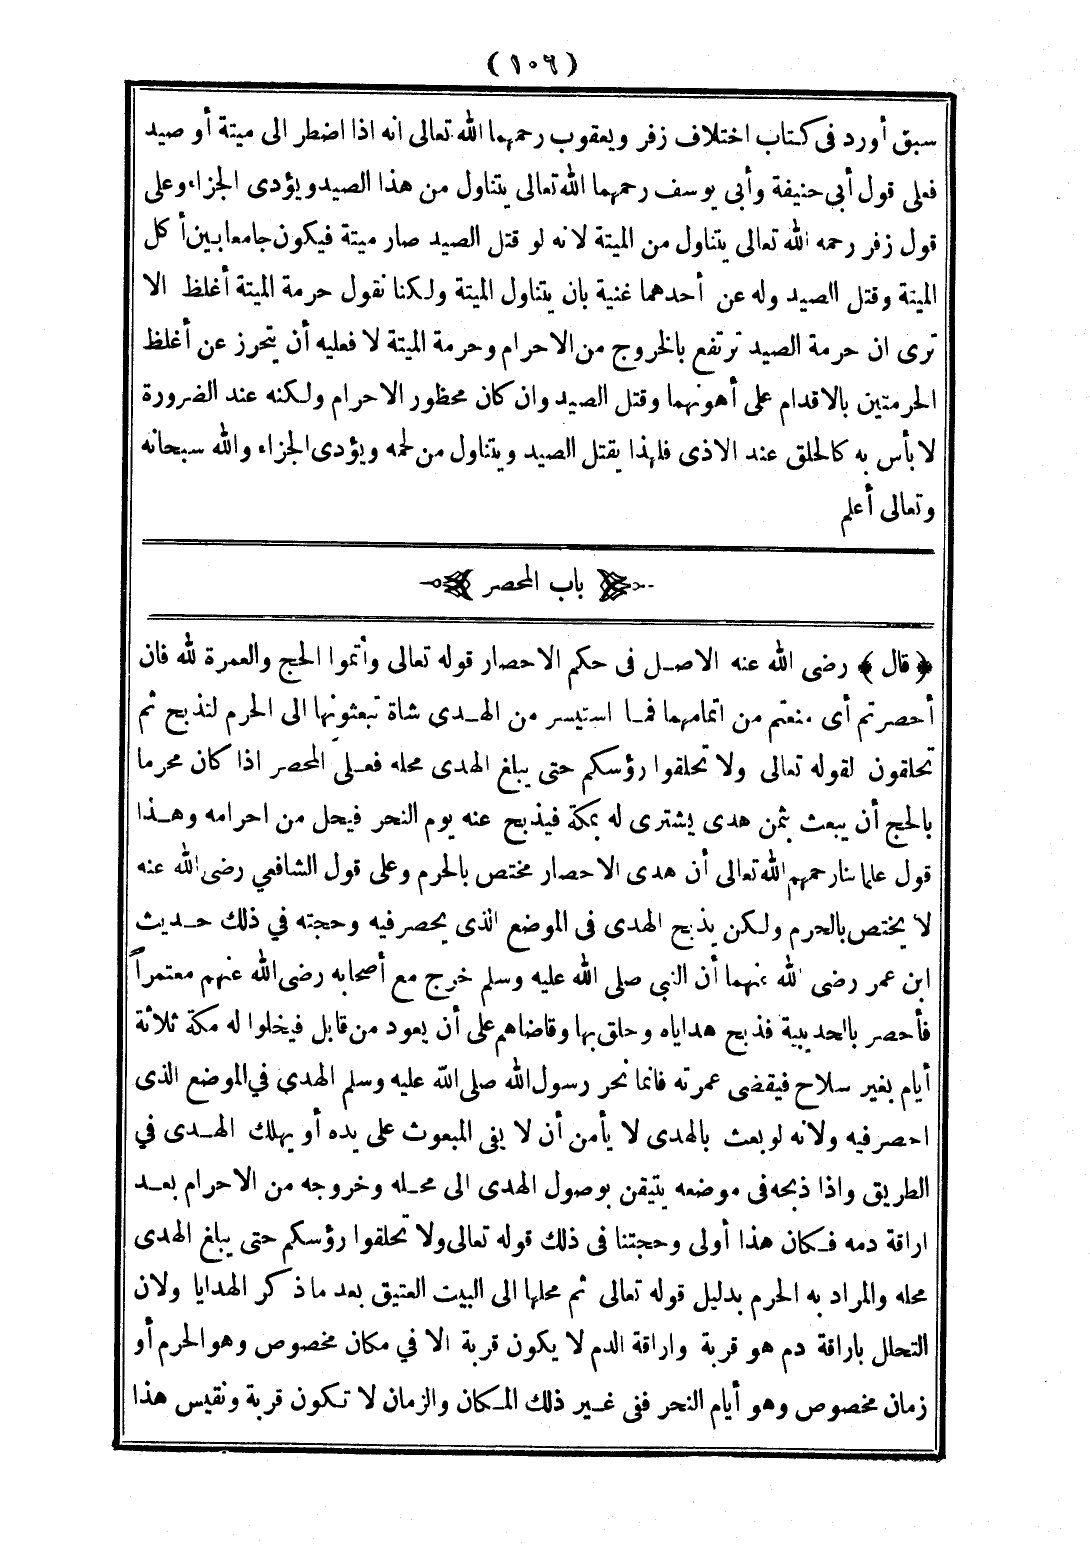 (١٠٦)
سبق أورد فى كتاب اختلاف زفر ويعقوب رحمهما الله تعالى انه اذا اضطر الى ميتة أو صيد
فعلى قول أبى حنيفة وأبى يوسف رحمهما الله تعالى يتناول من هذا الصيد ويؤدى الجزاء وعلى
قول زفر رحمه الله تعالى يتناول من الميتة لانه لو قتل الصيد صار ميتة فيكون جامعا بين أكل
الميتة وقتل الصيد وله عن أحدهما غنية بان يتناول الميتة ولكنا نقول حرمة الميتة أغلظ الا
ترى ان حرمة الصيد ترتفع بالخروج من الاحرام وحرمة الميتة لا فعليه أن يتحرز عن أغلظ
الحرمتين بالاقدام على أهونهما وقتل الصيد وان كان محظور الاحرام ولكنه عند الضرورة
لا بأس به كالحلق عند الاذى فلهذا يقتل الصيد ويتناول من لحمه ويؤدى الجزاء والله سبحانه
وتعالى أعلم
باب المحصر
﴿قال﴾ رضى الله عنه الاصل فى حكم الاحصار قوله تعالى وأتموا الحج والعمرة لله فان
أحصرتم أى منعتم من اتمامهما فما استيسر من الهدى شاة تبعثونها الى الحرم لتذبح ثم
تحلقون لقوله تعالى ولا تحلقوا رؤسكم حتى يبلغ الهدى محله فعلى المحصر اذا كان محرما
بالحج أن يبعث بثمن هدى يشترى له بمكة فيذبح عنه يوم النحر فيحل من احرامه وهذا
قول علمائنا رحمهم الله تعالى أن هدى الاحصار مختص بالحرم وعلى قول الشافعي رضى الله عنه
لا يختص بالحرم ولكن يذبح الهدى فى الموضع الذى يحصر فيه وحجته في ذلك حديث
ابن عمر رضى الله عنهما أن النبي صلى الله عليه وسلم خرج مع أصحابه رضى الله عنهم معتمراً
فأحصر بالحديبية فذبح هداياه وحلق بها وقاضاهم على أن يعود من قابل فيخلوا له مكة ثلاثة
أيام بغير سلاح فيقضى عمرته فانما نحر رسول الله صلى الله عليه وسلم الهدى في الموضع الذى
احصر فيه ولانه لو بعث بالهدى لا يأمن أن لا يفى المبعوث على يده أو يهلك الهدى في
الطريق واذا ذبحه فى موضعه يتيقن بوصول الهدى الى محله وخروجه من الاحرام بعد
اراقة دمه فكان هذا أولى وحجتنا فى ذلك قوله تعالى ولا تحلقوا رؤسكم حتى يبلغ الهدى
محله والمراد به الحرم بدليل قوله تعالى ثم محلها الى البيت العتيق بعد ما ذكر الهدايا ولان
التحلل باراقة دم هو قربة واراقة الدم لا يكون قربة الا في مكان مخصوص وهو الحرم أو
زمان مخصوص وهو أيام النحر ففى غير ذلك المكان والزمان لا تكون قربة ونقيس هذا